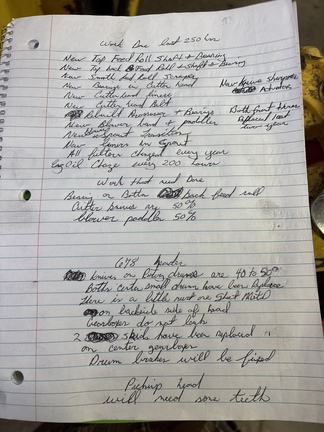 Work Done last 250 hrs
New Top Feed Roll Shaft + Bearing
New Top back Feed Roll Shaft + Bearing
New Smooth Roll Scraper
New Bearings in Cutter head
New Knive sharpener
New Cutterhead knives
Actuator
New Cutter head Belt
Rebuilt Processor + Bearings
Both front tires
New Blower band + paddles
replaced last
New Spout
two years
New in Spout
All filters changed every year
Eng Oil Change every 200 hours
Work that need Done
Bearing on Bottom back feed roll
Cutter knives are 50%
blower paddles 50%
678 header
knives on Rotary drums are 40 to 50%
Both center small drums have been replaced
There is a little rust on Sheet Metal
on backside side of head
Gearboxes do not leak
2 skids have been replaced
on center gearbox
Drum brakes will be fixed
Pickup head
will need some teeth